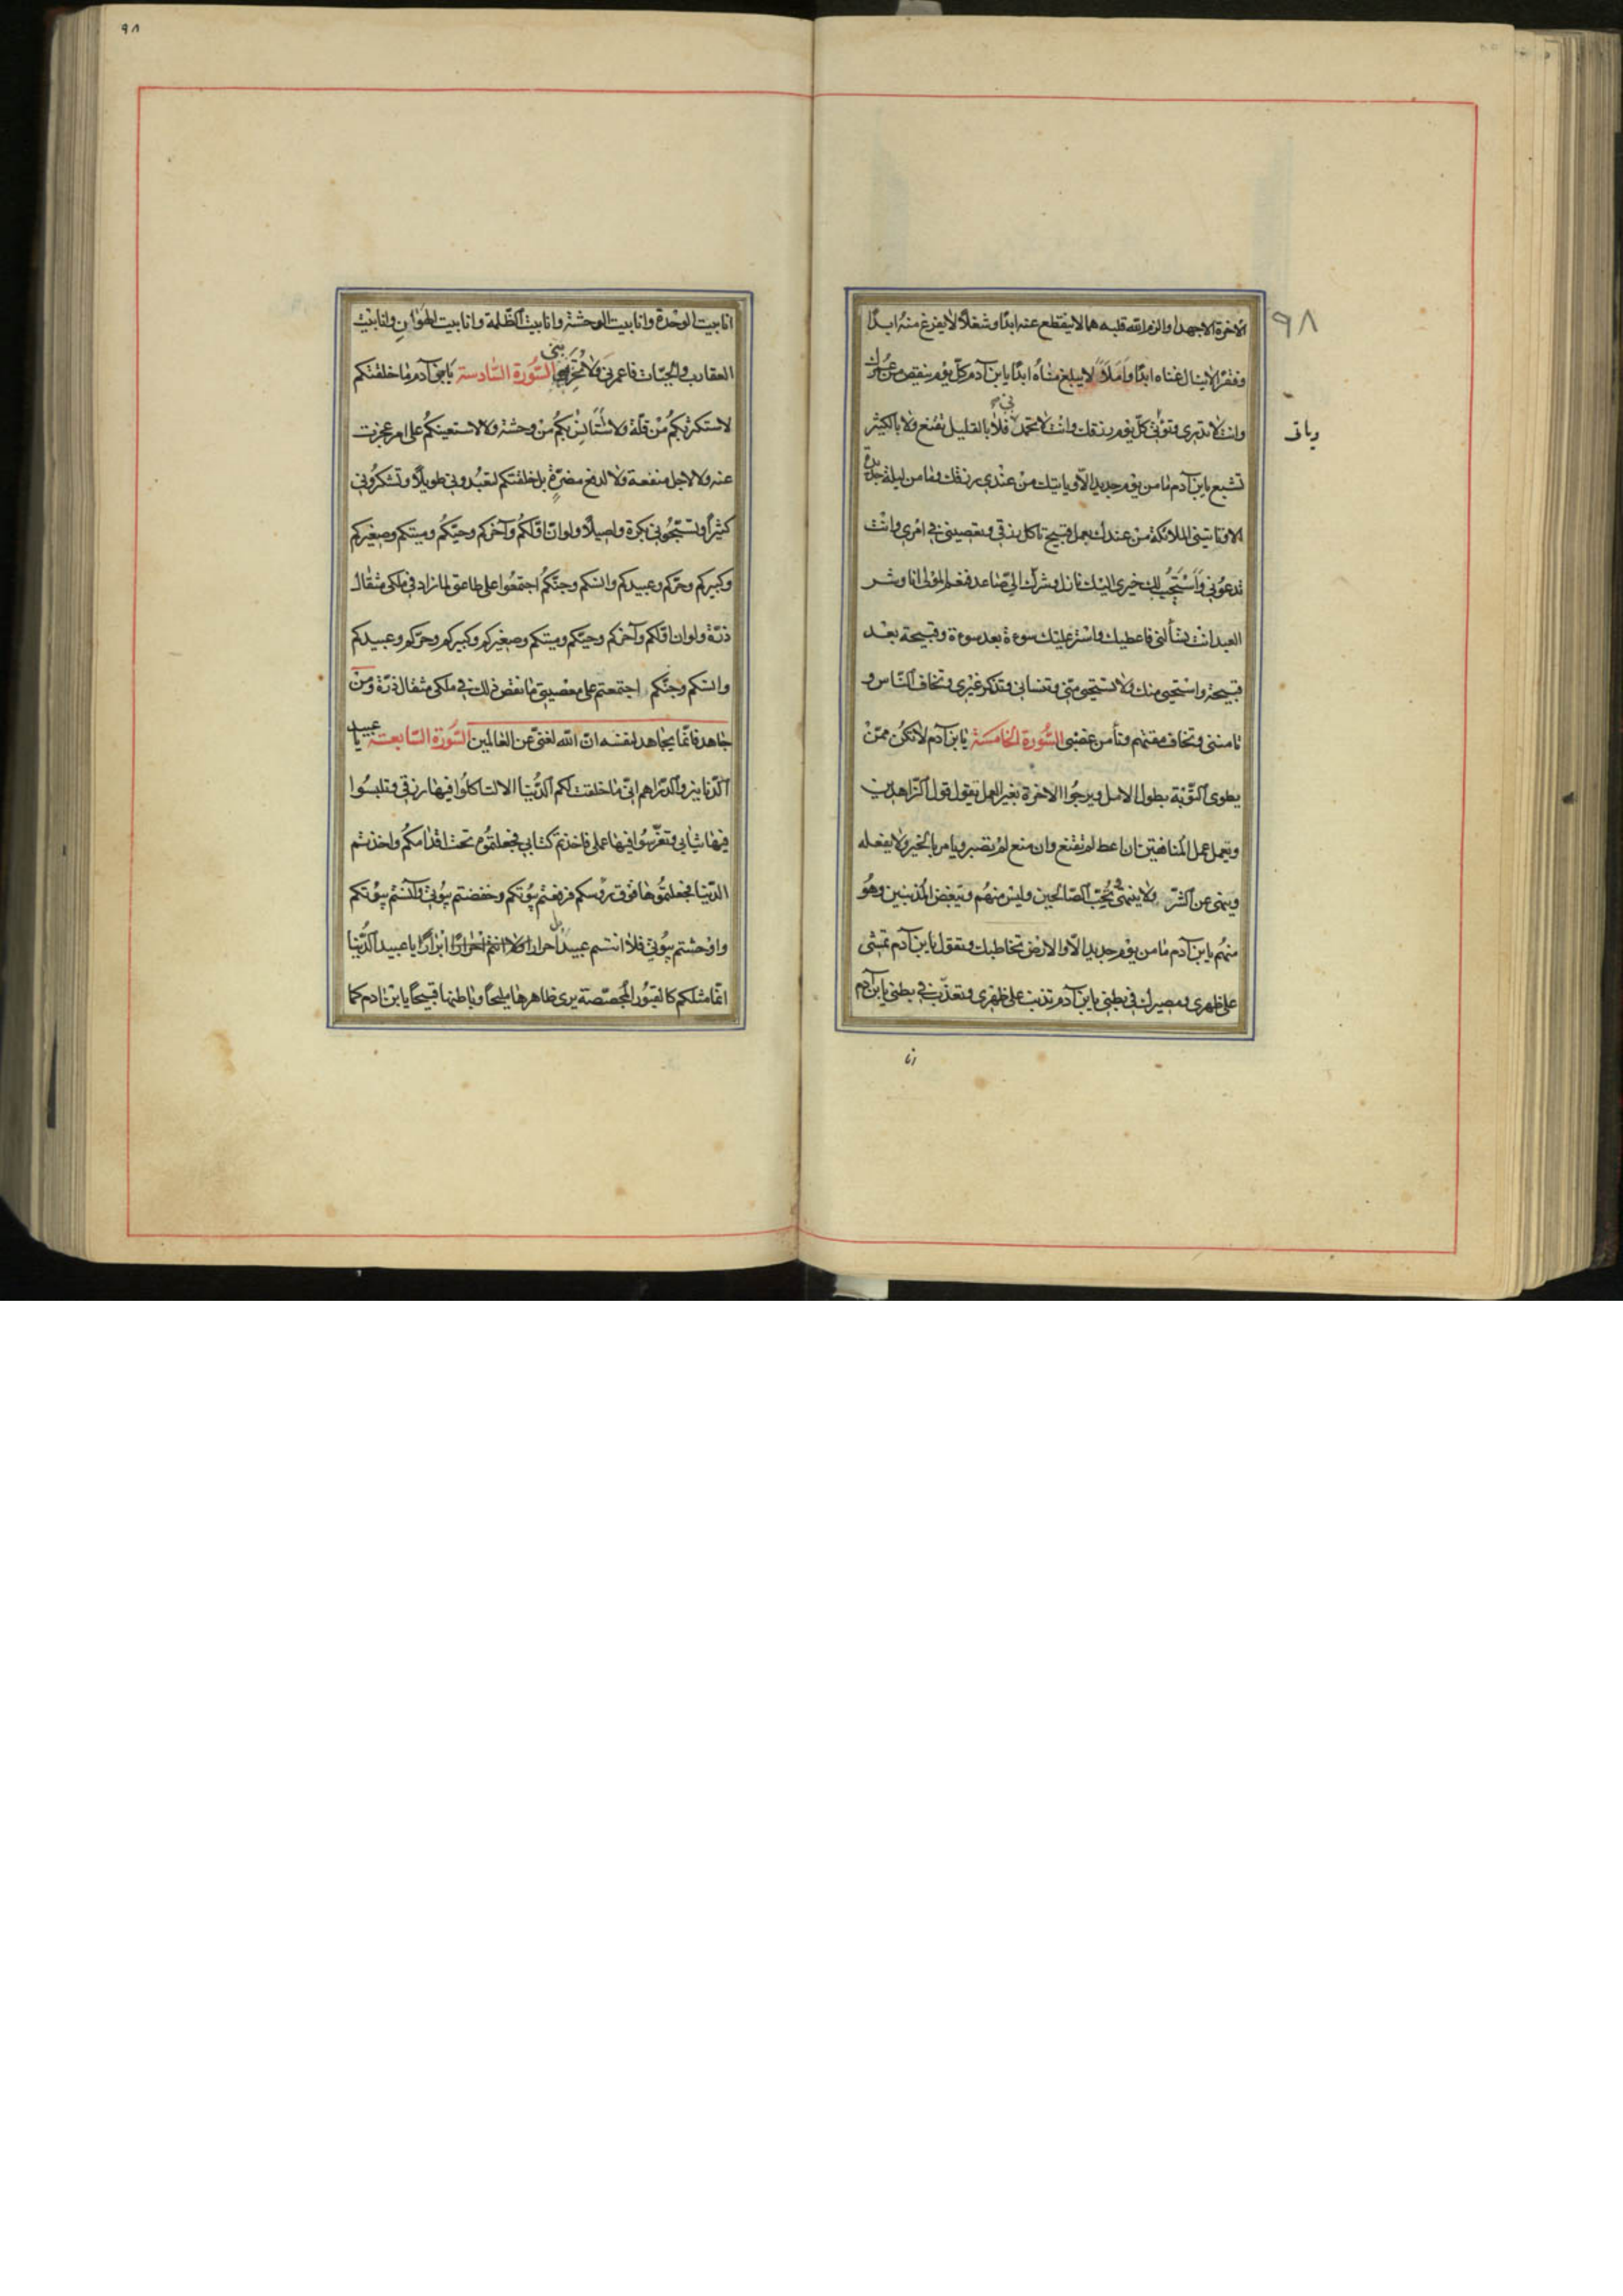 ٩٨
الاخرة الاجهدا والزم الله قلبه هما لا ينقطع عنه ابدًا وشغلًا لا يفرغ منه ابدًا
وفقرًا لا ينال غناه ابدًا وَاَمَلًا لا يبلغ مناه ابدًا يابن آدم كلّ يوم ينقص من عمرك
وانت لا تدرى وتوتى كلّ يوم رزقك وانت لا تحمدنى فلا بالقليل تقنع ولا بالكثير
وياتى
تشبع يابن آدم ما من يوم جديد الّا وياتيك من عندى رزقك وما من ليلة جديدة
الا وتاتينى الملائكة من عندك بعمل قبيح تاكل رزقى وتعصينى فى امرى وانت
تدعونى وَاَسْتَجيب لك خيرى اليك نازل وشرك الىّ صاعد فنعم المولى انا وشر
العبد انت تسألنى فاعطيك واستر عليك سوءة بعد سوءة وقبيحة بعد
قبيحة واستحيى منك ولا تستحيى منّى وتنسانى وتذكر غيرى وتخاف الناس و
تامننى وتخاف مقتهم وتأمن غضبى السُّورة الخامسة يابن آدم لا تكن ممّن
يطوى التّوبة بطول الامل ويرجوا الاخرة بغير العمل يقول قول الزاهدين
ويعمل عمل المنافقين ان اعطى لم يقنع وان منع لم يصبر ويامر بالخير ولا يفعله
وينهى عن الشّر ولا ينتهى ويُحِبّ الصّالحين وليس منهم ويبغض المذنبين وهُو
منهم يابن آدم ما من يوم جديد الّا والارض تخاطبك وتقول يابن آدم تمشى
على ظهرى ومصيرك فى بطنى يابن آدم تذنب على ظهرى وتعذّب فى بطنى يابن آدم
انا
٩٨
انا بيت الوحدة وانا بيت الوحشة وانا بيت الظّلمة وانا بيت الهوان وانا بيت
العقارب والحيّات فاعمرنى ولا تخربنى السّورة السّادسة يابنى آدم ما خلقتكم
لاستكثر بكم من قلّة ولا لاستانس بكم من وحشة ولا لاستعينكم على امر عجزت
عنه ولا لاجل منفعة ولا لدفع مضرّة بل خلقتكم لتعبدونى طويلًا وتشكرونى
كثيرًا وتسبّحونى بكرة واصيلًا ولو انّ اوّلكم وآخركم وحيّكم وميتكم وصغيركم
وكبيركم وحرّكم وعبيدكم وانسكم وجنّكم اجتمعوا على طاعتى لما زاد فى ملكى مثقال
ذرّة ولو ان اوّلكم وآخركم وحيّكم وميتكم وصغيركم وكبيركم وحرّكم وعبيدكم
وانسكم وجنّكم اجتمعتم على معصيتى ما نقص ذلك فى ملكى مثقال ذرّة ومن
جاهد فانّما يجاهد لنفسه انّ الله لغنىّ عن العالمين السّورة السّابعة يا عبيد
الدّنانير والدّراهم انى ما خلقت لكم الدّنيا الا لتاكلوا فيها رزقى وتلبسُوا
فيها ثيابى فاخذتم كتابى فجعلتموه تحت اقدامكم واخذتم
الدّنيا فجعلتموها فوق رؤسكم فرفعتم بيُوتكم وخفضتم بيُوتى وآنستم بيُوتكم
واوحشتم بيُوتى فلا انتم عبيد احرارا ولا انتم احرارًا ابرارًا يا عبيد الدّنيا
انّما مثلكم كالقبُور المجصّصة يرى ظاهرها مليحًا وباطنها قبيحًا يابن آدم كما